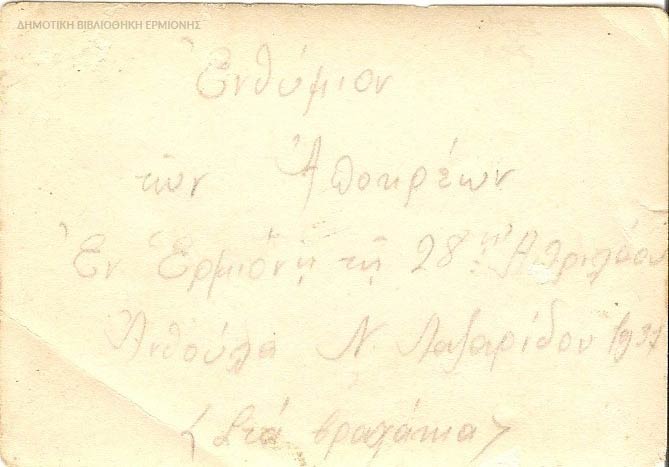 ΔΗΜΟΤΙΚΗ ΒΙΒΛΙΟΘΗΚΗ ΕΡΜΙΟΝΗΣ
Ἐνθύμιον
τῶν Ἀποκρέων
Ἐν Ἑρμιόνῃ τῇ 28ῃ Ἀπριλίου
Ἀνθούλα Ν. Λαζαρίδου 1937
(Στά βραχάκια)